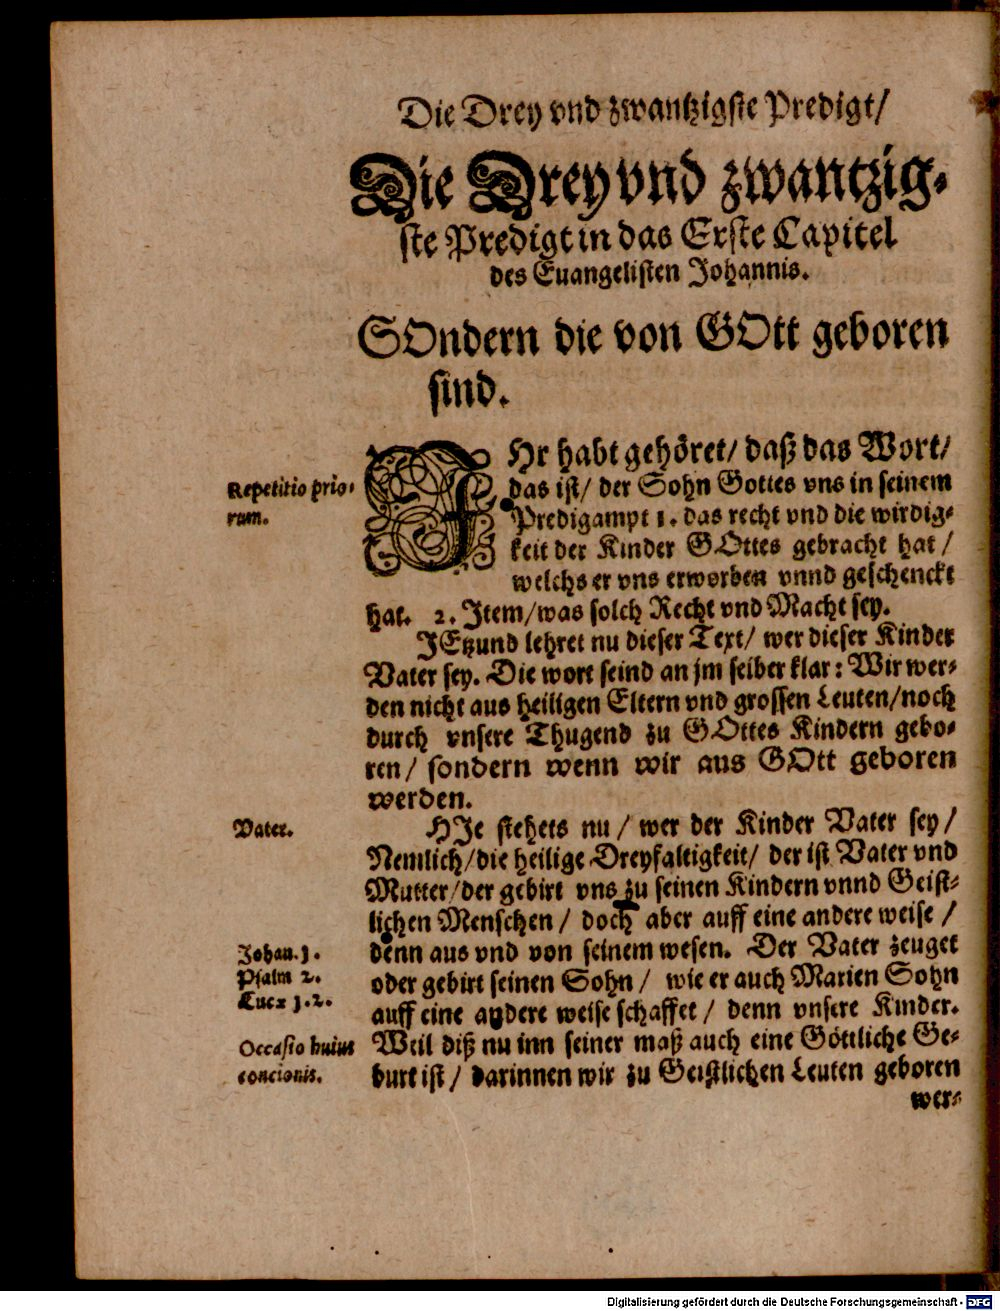 Die Drey vnd zwantzigste Predigt/
Die Drey vnd zwantzig-
ste Predigt in das Erste Capitel
des Euangelisten Johannis.
SOndern die von GOtt geboren
sind.
Repetitio prio-
rum.
IHr habt gehöret/ daß das Wort/
das ist/ der Sohn Gottes vns in seinem
Predigampt 1. das recht vnd die wirdig-
keit der Kinder GOttes gebracht hat/
welchs er vns erworben vnnd geschenckt
hat. 2. Item/was solch Recht vnd Macht sey.
IEtzund lehret nu dieser Text/ wer dieser Kinder
Vater sey. Die wort seind an jm selber klar: Wir wer-
den nicht aus heiligen Eltern vnd grossen Leuten/noch
durch vnsere Thugend zu GOttes Kindern gebo-
ren/ sondern wenn wir aus GOtt geboren
werden.
Vater.
HIe stehets nu / wer der Kinder Vater sey/
Nemlich/die heilige Dreyfaltigkeit/ der ist Vater vnd
Mutter/der gebirt vns zu seinen Kindern vnnd Geist-
lichen Menschen / doch aber auff eine andere weise /
Johan. 3.
Psalm 2.
Lucæ 1.2.
denn aus vnd von seinem wesen. Der Vater zeuget
oder gebirt seinen Sohn / wie er auch Marien Sohn
auff eine andere weise schaffet / denn vnsere Kinder.
Occasio huius
concionis.
Weil diß nu inn seiner maß auch eine Göttliche Ge-
burt ist / darinnen wir zu Geistlichen Leuten geboren
wer-
Digitalisierung gefördert durch die Deutsche Forschungsgemeinschaft - DFG